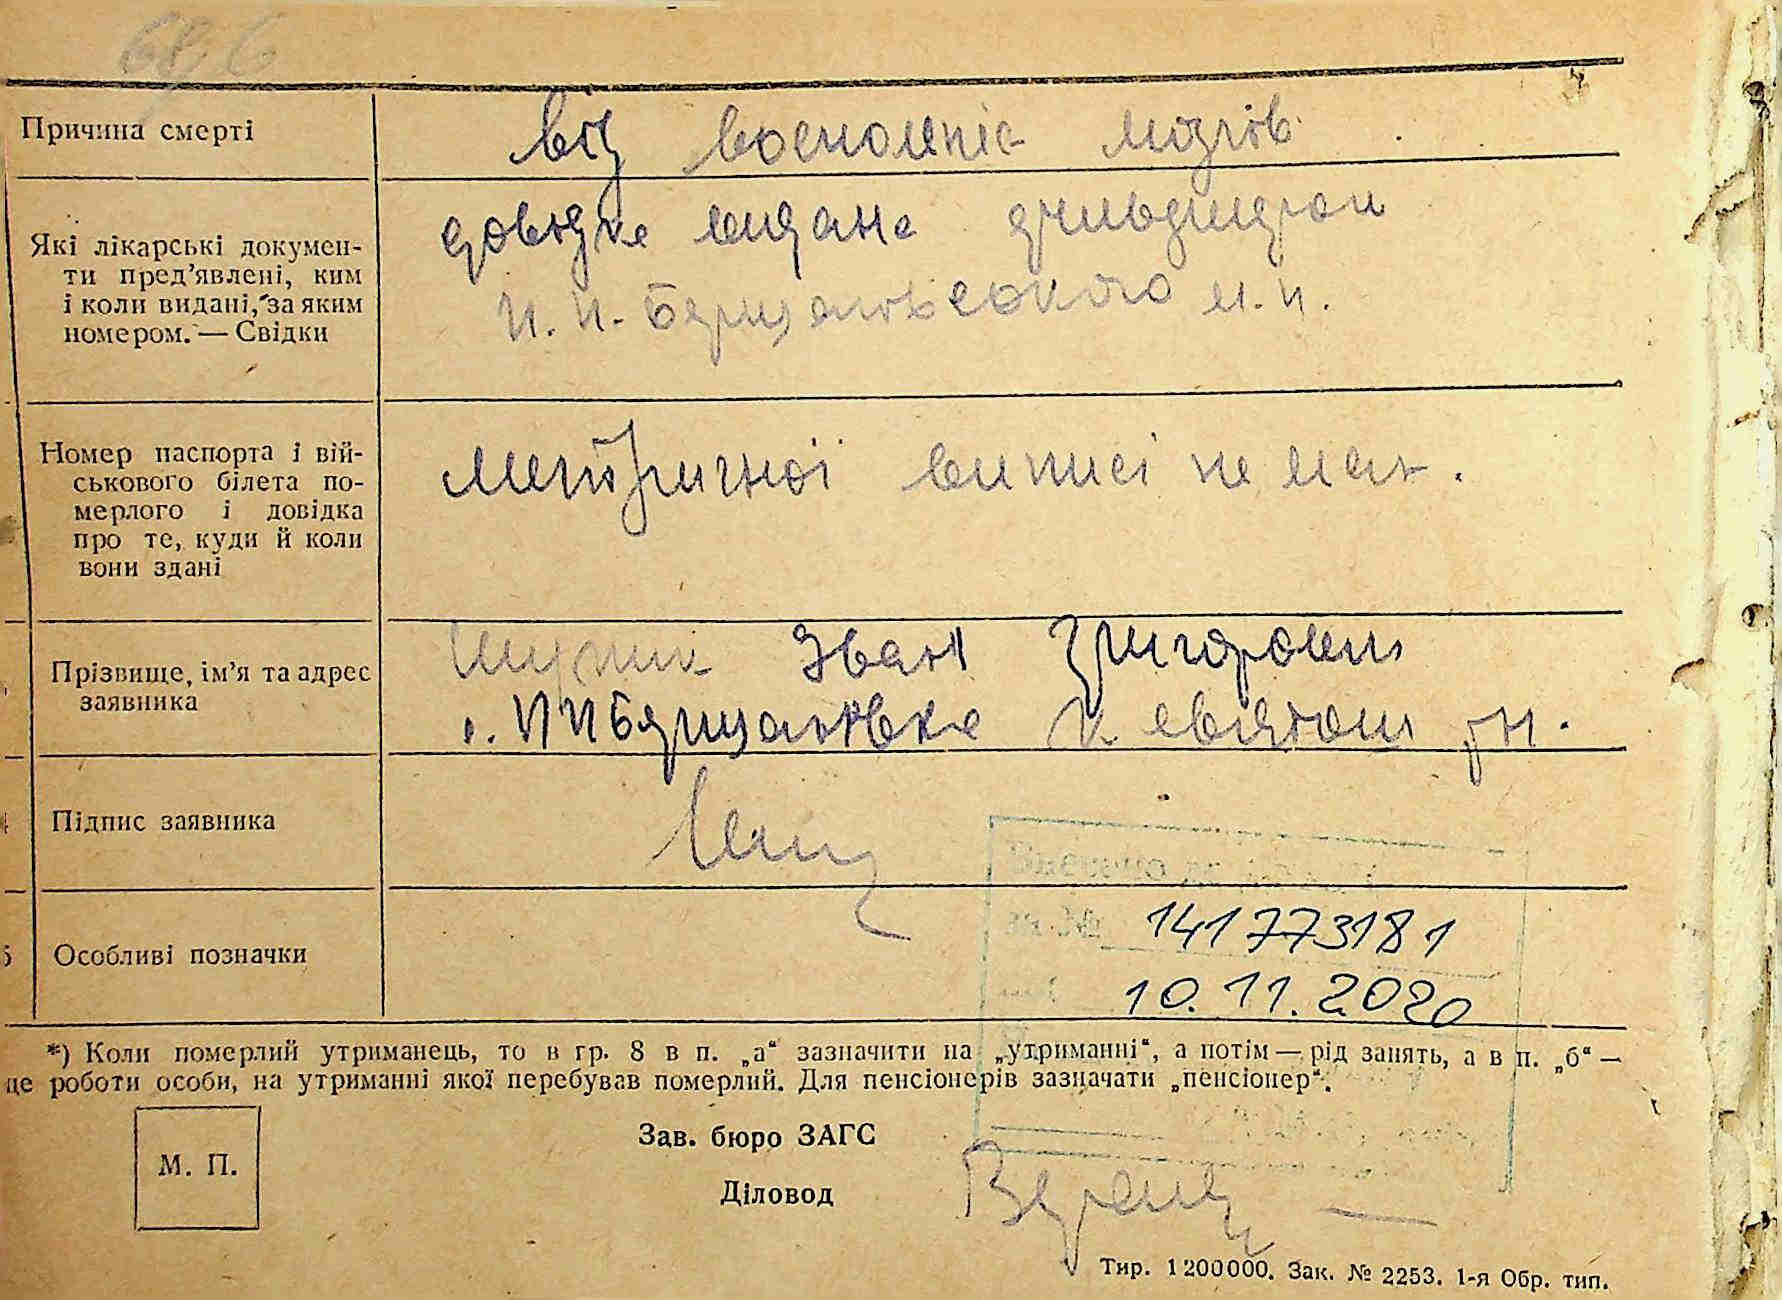 Причина смерті
від воспоління мозгів
Які лікарські докумен-
ти пред'явлені, ким
і коли видані, за яким
номером. — Свідки
довідка видана
П. П. Борщагівського м. п.
Номер паспорта і вій-
ськового білета по-
мерлого і довідка
про те, куди й коли
вони здані
метричної виписі не має.
Прізвище, ім'я та адрес
заявника
Іван Григорович
с. ПП Борщагівка К святош рн.
Підпис заявника
Особливі позначки
141773181
10.11.2020
*) Коли померлий утриманець, то в гр. 8 в п. „а“ зазначити на „утриманні“, а потім — рід занять, а в п. „б“ —
це роботи особи, на утриманні якої перебував померлий. Для пенсіонерів зазначати „пенсіонер“.
М. П.
Зав. бюро ЗАГС
Діловод
Тир. 1200000. Зак. № 2253. 1-я Обр. тип.